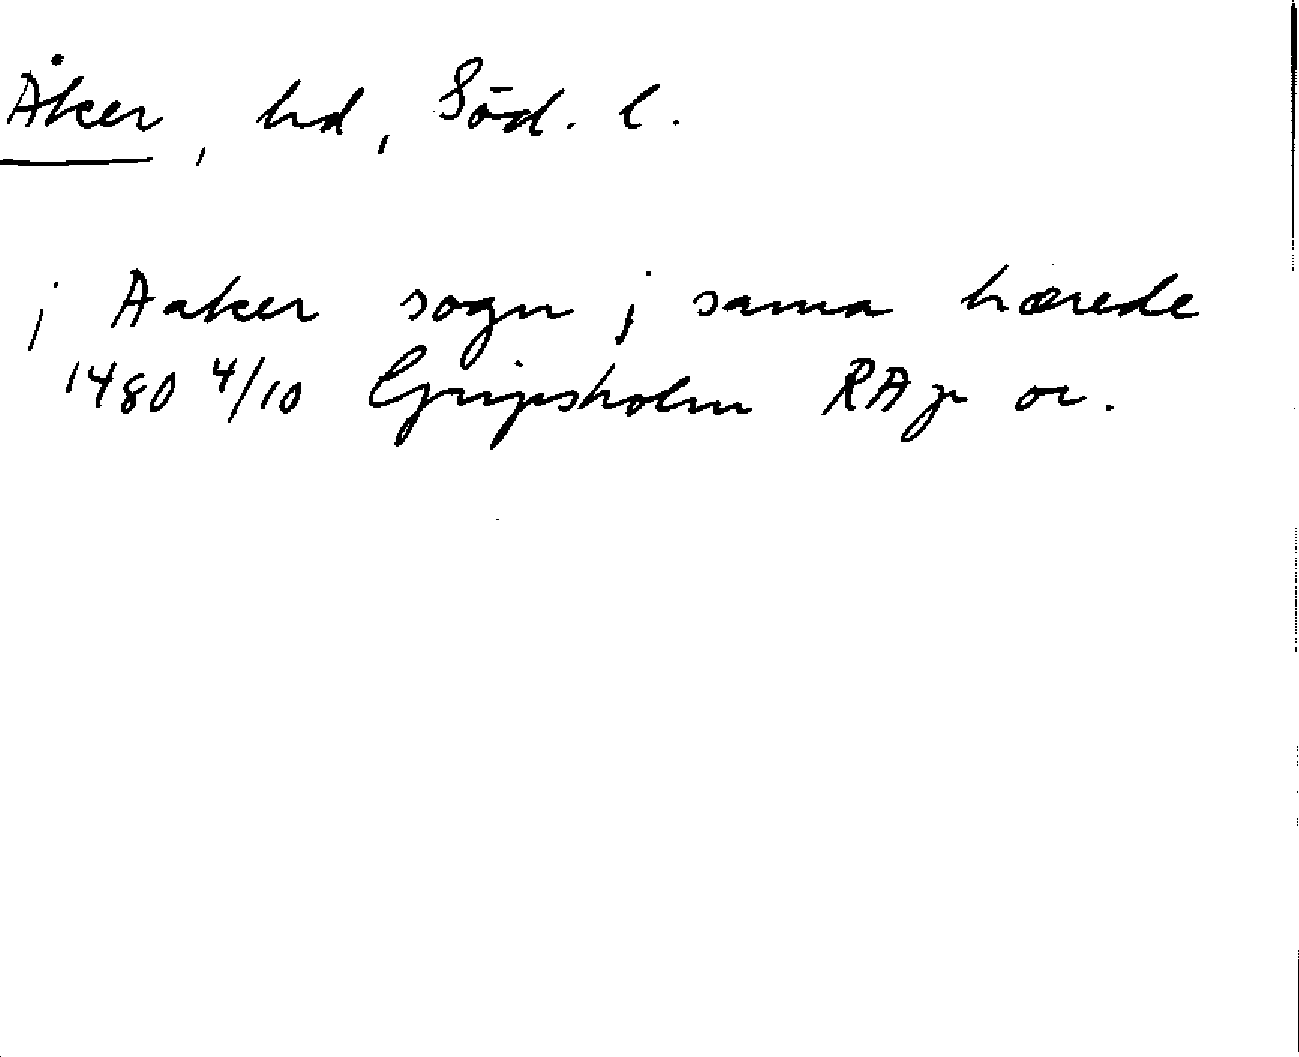 Åker, hd, Söd. l.
j Aaker sogn j sama hærede
1480 4/10 Gripsholm RAp or.